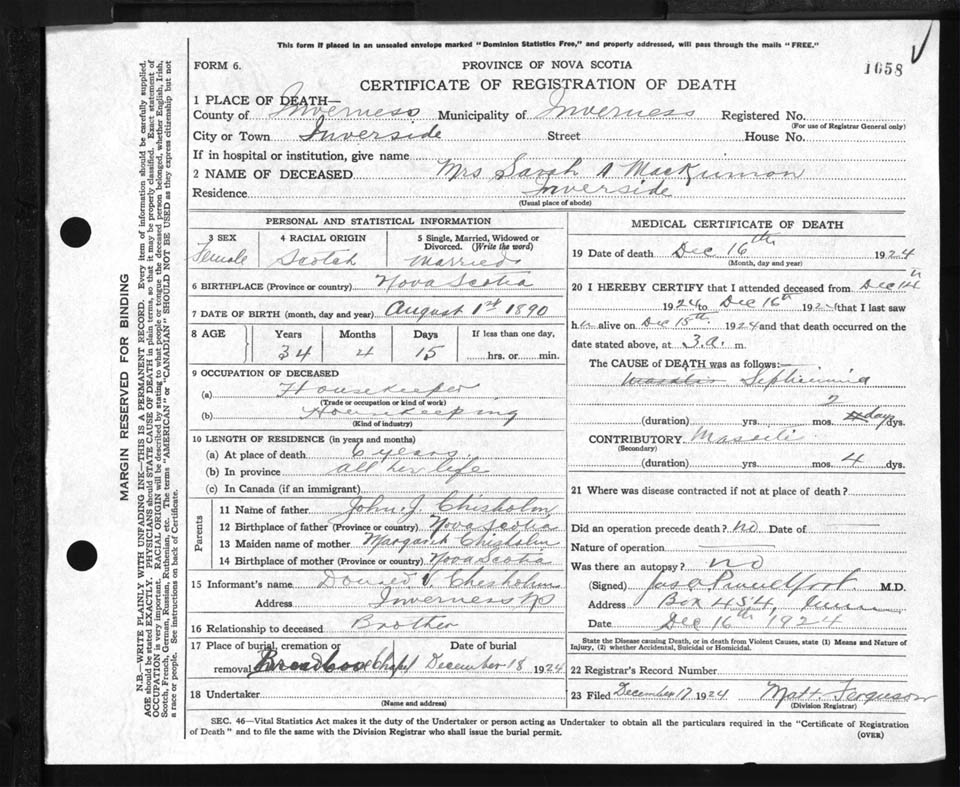 This form if placed in an unsealed envelope marked "Dominion Statistics Free," and properly addressed, will pass through the mails "FREE."
FORM 6. PROVINCE OF NOVA SCOTIA 1658
CERTIFICATE OF REGISTRATION OF DEATH
1 PLACE OF DEATH—
County of Inverness Municipality of Inverness Registered No.
(For use of Registrar General only)
City or Town Inverside Street House No.
If in hospital or institution, give name
2 NAME OF DECEASED Mrs Sarah A MacKinnon
Residence Inverside
(Usual place of abode)
PERSONAL AND STATISTICAL INFORMATION
3 SEX 4 RACIAL ORIGIN 5 Single, Married, Widowed or Divorced. (Write the word)
Female Scotch Married
6 BIRTHPLACE (Province or country) Nova Scotia
7 DATE OF BIRTH (month, day and year) August 1st 1890
8 AGE Years Months Days If less than one day,
34 4 15 hrs. or min.
9 OCCUPATION OF DECEASED
(a) Housekeeper
(Trade or occupation or kind of work)
(b) Housekeeping
(Kind of industry)
10 LENGTH OF RESIDENCE (in years and months)
(a) At place of death 6 years
(b) In province all her life
(c) In Canada (if an immigrant)
Parents
11 Name of father John J. Chisholm
12 Birthplace of father (Province or country) Nova Scotia
13 Maiden name of mother Margaret Chisholm
14 Birthplace of mother (Province or country) Nova Scotia
15 Informant's name Donald V Chisholm
Address Inverness NS
16 Relationship to deceased Brother
17 Place of burial, cremation or Date of burial
removal Chapel December 18 1924
18 Undertaker
(Name and address)
MEDICAL CERTIFICATE OF DEATH
19 Date of death Dec 16th 1924
(Month, day and year)
20 I HEREBY CERTIFY that I attended deceased from Dec 14th
1924 to Dec 16th 192 (that I last saw
h alive on Dec 15th 1924 and that death occurred on
date stated above, at 3.a. m.
The CAUSE of DEATH was as follows:—
(duration) yrs. mos. 2 days dys.
CONTRIBUTORY
(Secondary)
(duration) yrs. mos. 4 dys.
21 Where was disease contracted if not at place of death?
Did an operation precede death? no Date of
Nature of operation
Was there an autopsy? no
(Signed) M.D.
Address Box 454,
Date Dec 16th 1924
State the Disease causing Death, or in death from Violent Causes, state (1) Means and Nature of Injury, (2) whether Accidental, Suicidal or Homicidal.
22 Registrar's Record Number
23 Filed December 17 1924 Matt. Ferguson
(Division Registrar)
SEC. 46—Vital Statistics Act makes it the duty of the Undertaker or person acting as Undertaker to obtain all the particulars required in the "Certificate of Registration
of Death" and to file the same with the Division Registrar who shall issue the burial permit.
(OVER)
MARGIN RESERVED FOR BINDING
N.B.—WRITE PLAINLY WITH UNFADING INK—THIS IS A PERMANENT RECORD. Every item of information should be carefully supplied.
AGE should be stated EXACTLY. PHYSICIANS should STATE CAUSE OF DEATH in plain terms, so that it may be properly classified. Exact statement of
OCCUPATION is very important. RACIAL ORIGIN will be described by stating to what people or tongue the deceased person belonged, whether English, Irish,
Scotch, French, German, Russian, Ruthenian, etc. The terms "AMERICAN" or "CANADIAN" SHOULD NOT BE USED as they express citizenship but not
a race or people. See instructions on back of Certificate.